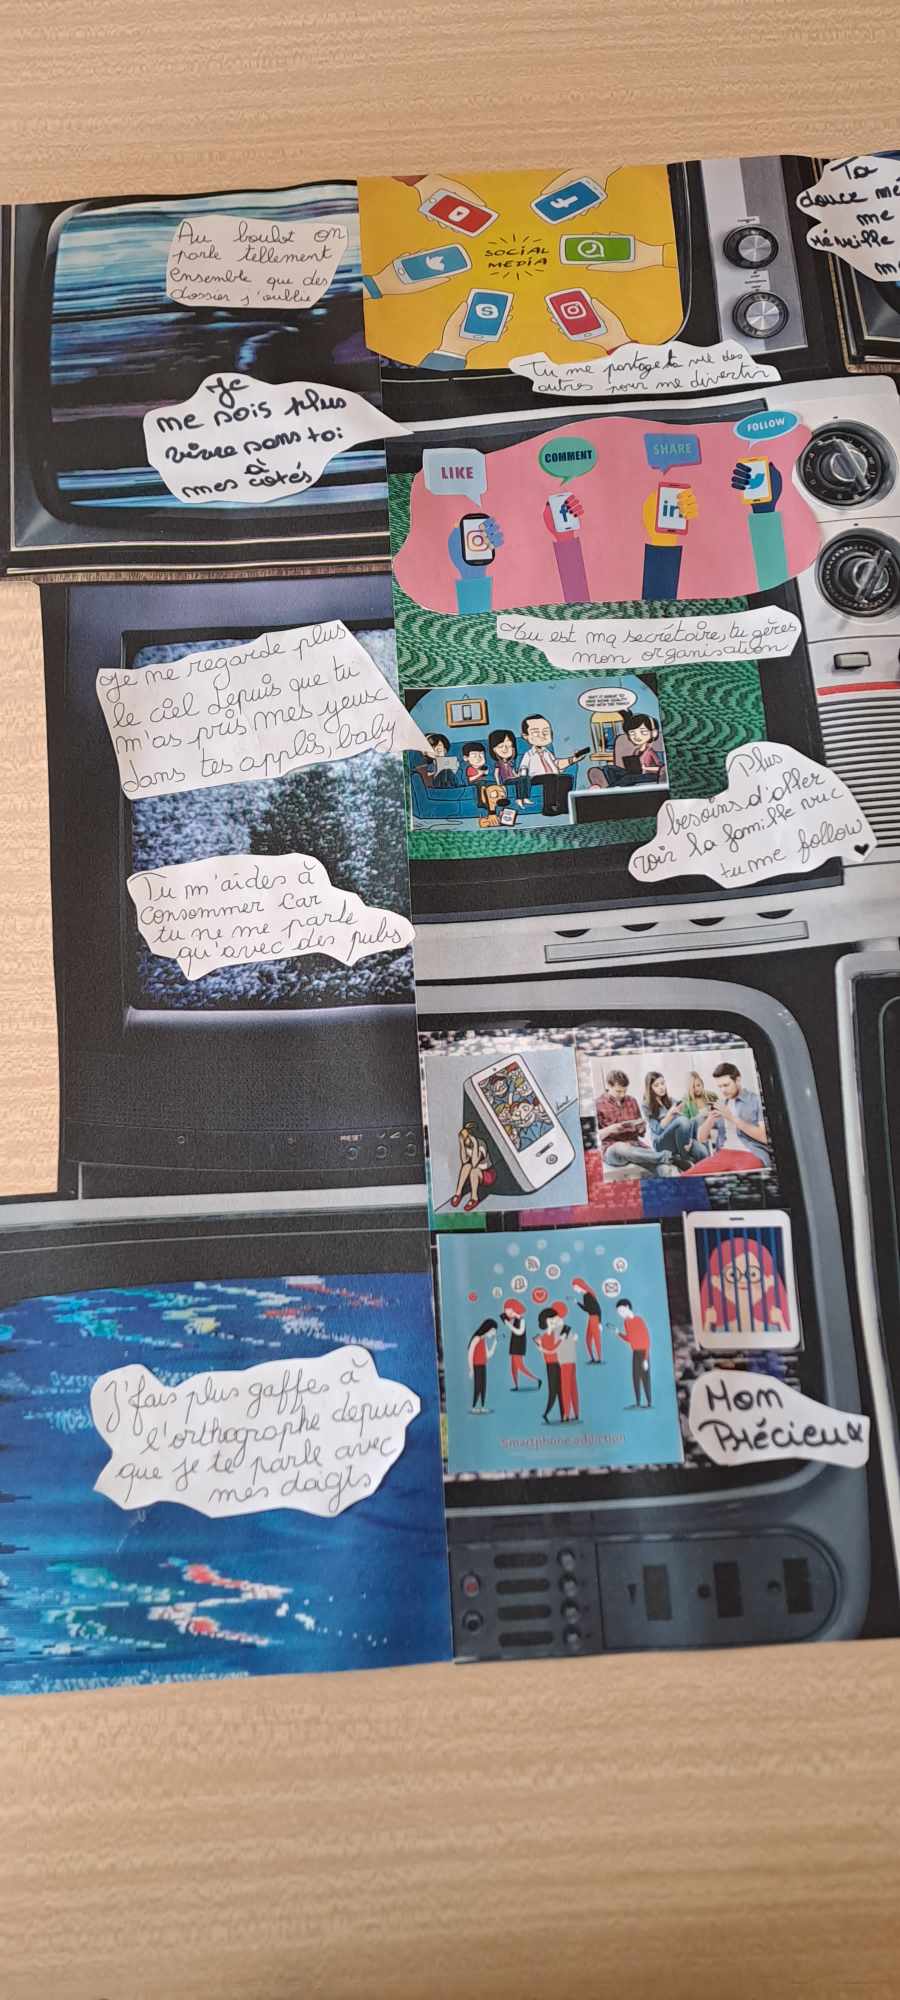 Au boulot on
parle tellement
ensemble que des
dossier j'oublie
SOCIAL
MEDIA
Ta
douce mé
me
réveille
m
Tu me partage ta vie des
autres pour me divertir
Je
me vois plus
vivre sans toi
à
mes côtés
LIKE
COMMENT
SHARE
FOLLOW
in
Tu est ma secrétoire, tu gères
mon organisation
Je me regarde plus
le ciel depuis que tu
m'as pris mes yeux
dans tes applis, baby
Plus
besoins d'aller
voir la famille
tu me follow
Tu m'aides à
consommer car
tu ne me parle
qu'avec des pubs
PRESET
J'fais plus gaffes à
l'orthographe depuis
que je te parle avec
mes doigts
Smartphone addiction
Mon
Précieux